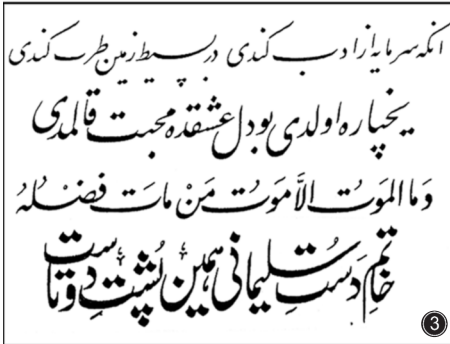 آنکه سرمایه از ادب کندی در بسیط زمین طرب کندی
یخپاره اولدی بو دل عشقده محبت قالمدی
وَما المَوتُ اِلاَّ مَوتُ مَنْ ماتَ فَضْلُهُ
خاتمِ دَستِ سُلیمانی همین پُشتِ دوتاست
3